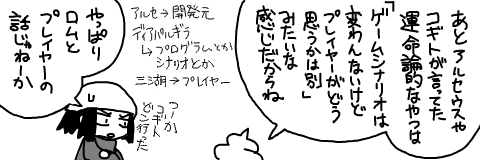 あとアルセウスや
コギトが言ってた
運命論的なやつは
「ゲームシナリオは
変わんないけど
プレイヤーがどう
思うかは別」
みたいな
感じだからね
アルセ→開発元
ディアパルギラ
↳プログラムとか
シナリオとか
三湖→プレイヤー
つーか
コギト
どこ行った
やっぱり
ロムと
プレイヤーの
話じゃねーか